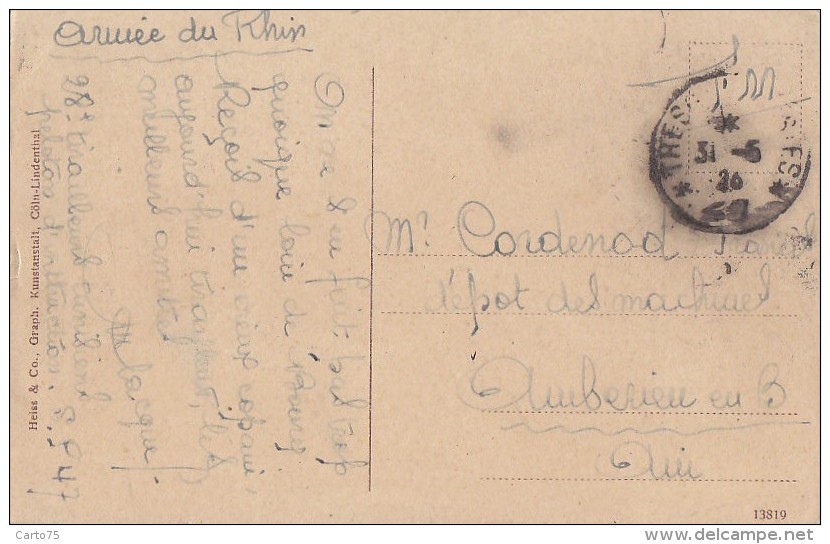 Armée du Rhin
On ne s'en fait pas trop
quoique loin de
Reçois d'un vieux copain,
aujourd'hui tirailleur, les
meilleures amitiés
28e tirailleurs tunisiens
peloton d'instruction. S.P 47
Heiss & Co., Graph. Kunstanstalt, Cöln-Lindenthal
F M
TRES
31 -5
26
Mr. Cordenod
dépot des machines
Amberieu en B
Ain
13819
Carto75
http://www.delcampe.net